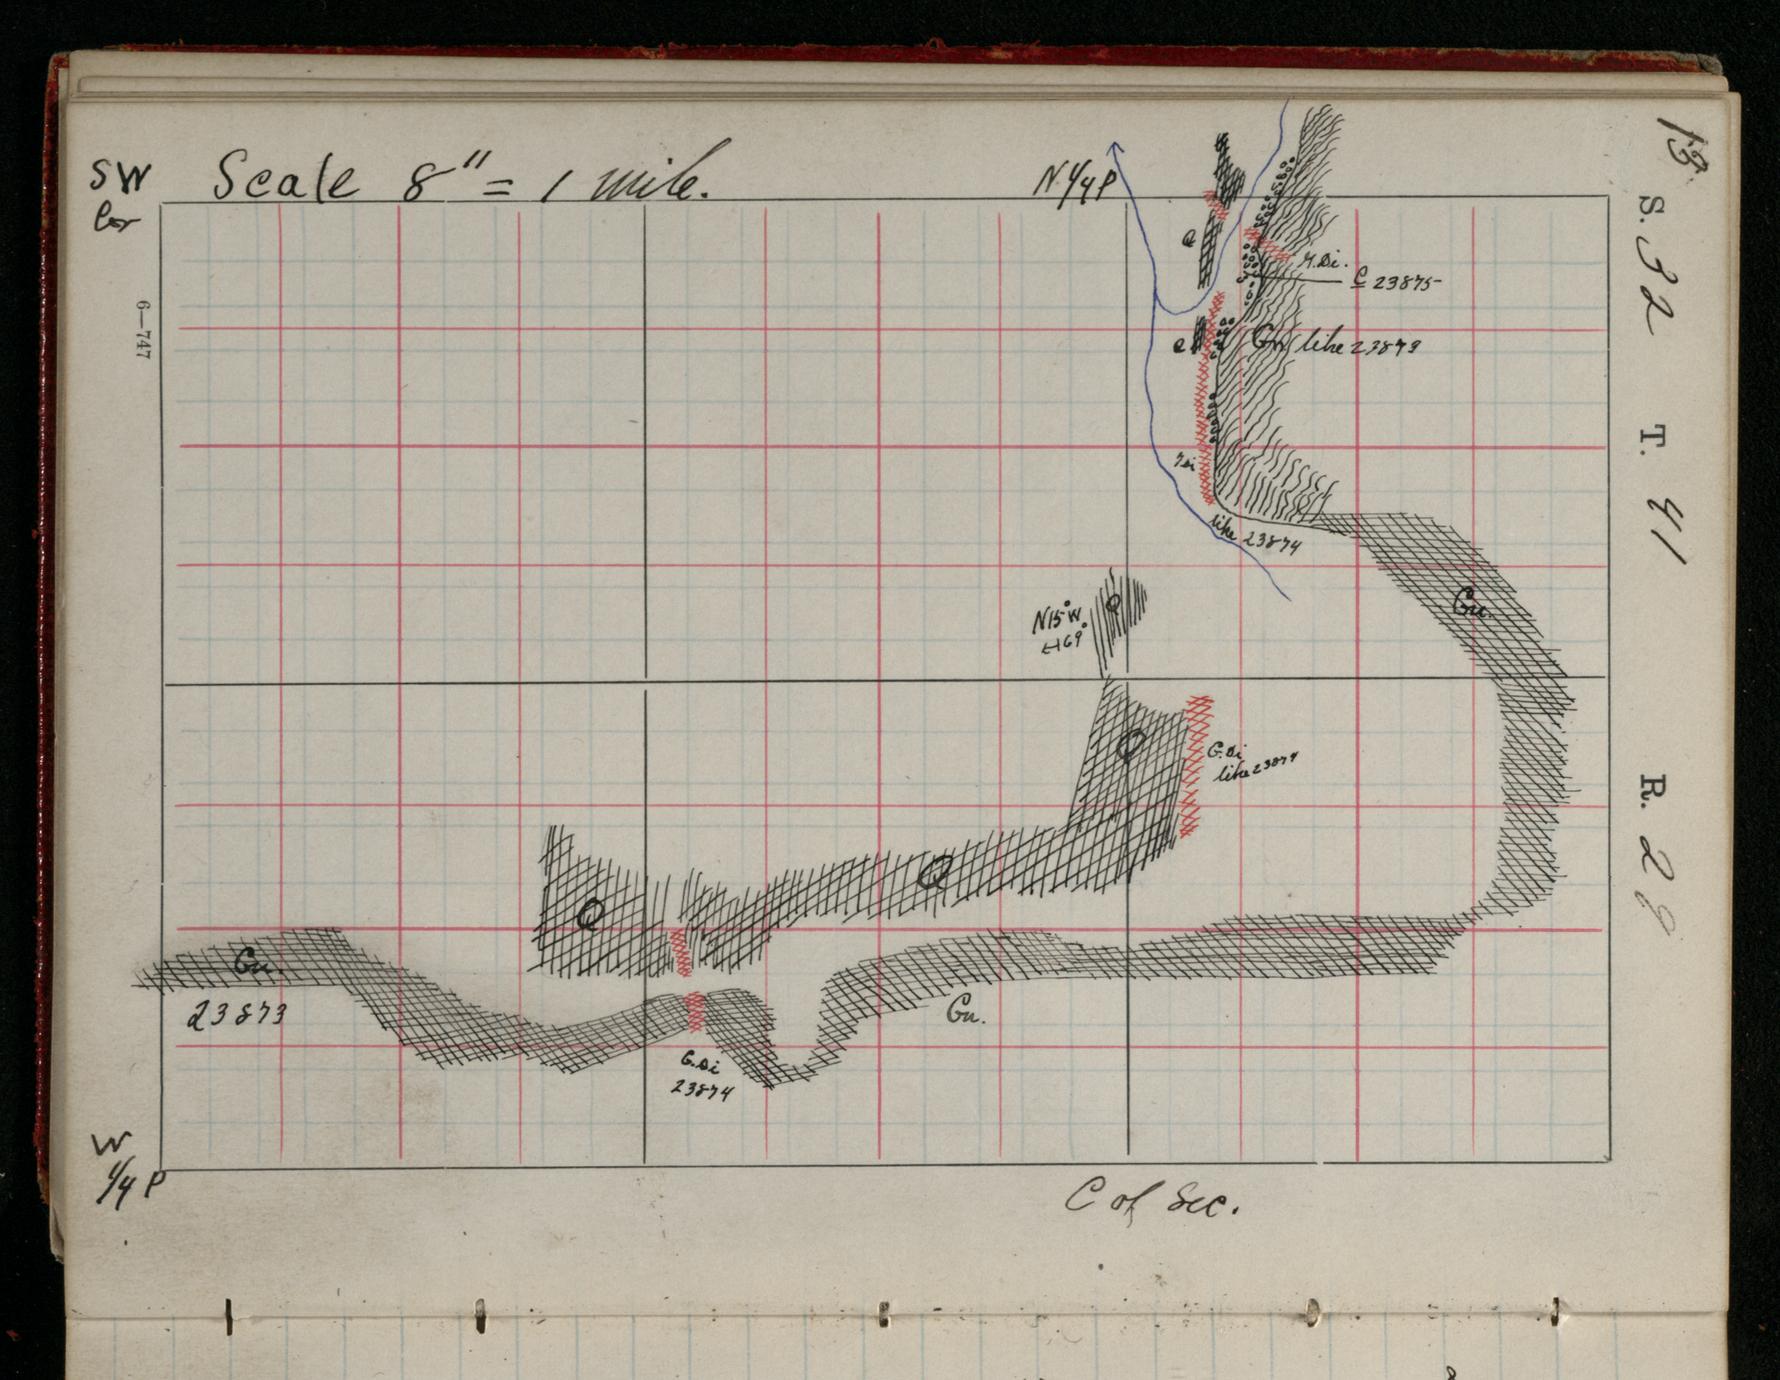 13
SW
Cor
Scale 8" = 1 mile.
N 1/4 P
S. 32
T. 41
R. 28
6—747
Q
G.Di.
C 23875
Q
Gn like 23873
like 23874
Gn.
Q
N15°W.
69°
Q
G.Di
like 23874
Q
Q
Gn.
23873
Gn.
G.Di
23874
W
1/4 P
C of Sec.